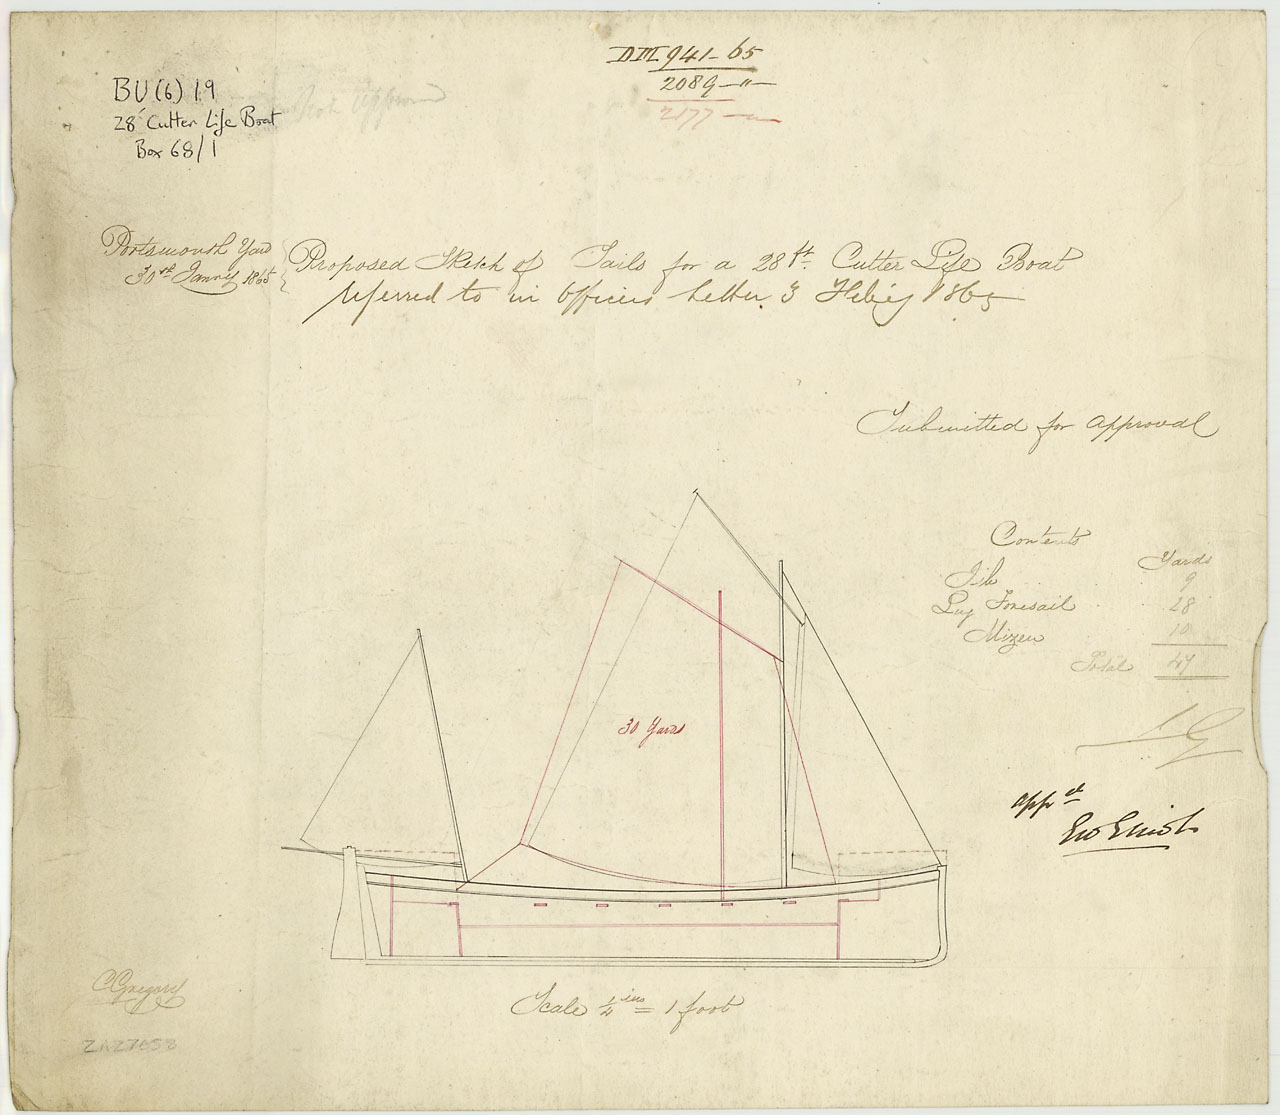 DIII 941-65
2089 -"-
2177 -"-
BU(6)19
28' Cutter Life Boat
Box 68/1
Portsmouth Yard
30th Janry 1865
Proposed Sketch of Sails for a 28ft. Cutter Life Boat
referred to in Officers Letter 3 Feb'y 1865
Submitted for Approval
Contents
Yards
Jib 9
Lug Foresail 28
Mizen 10
Total 47
30 Yards
appd
Geo Elliot
Scale 1/4 ins = 1 foot
C Gregory